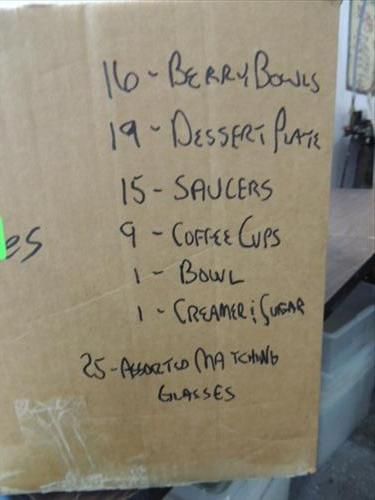 16 - BERRY BOWLS
19 - DESSERT PLATE
15 - SAUCERS
es
9 - COFFEE CUPS
1 - BOWL
1 - CREAMER & SUGAR
25 - ASSORTED MATCHING
GLASSES